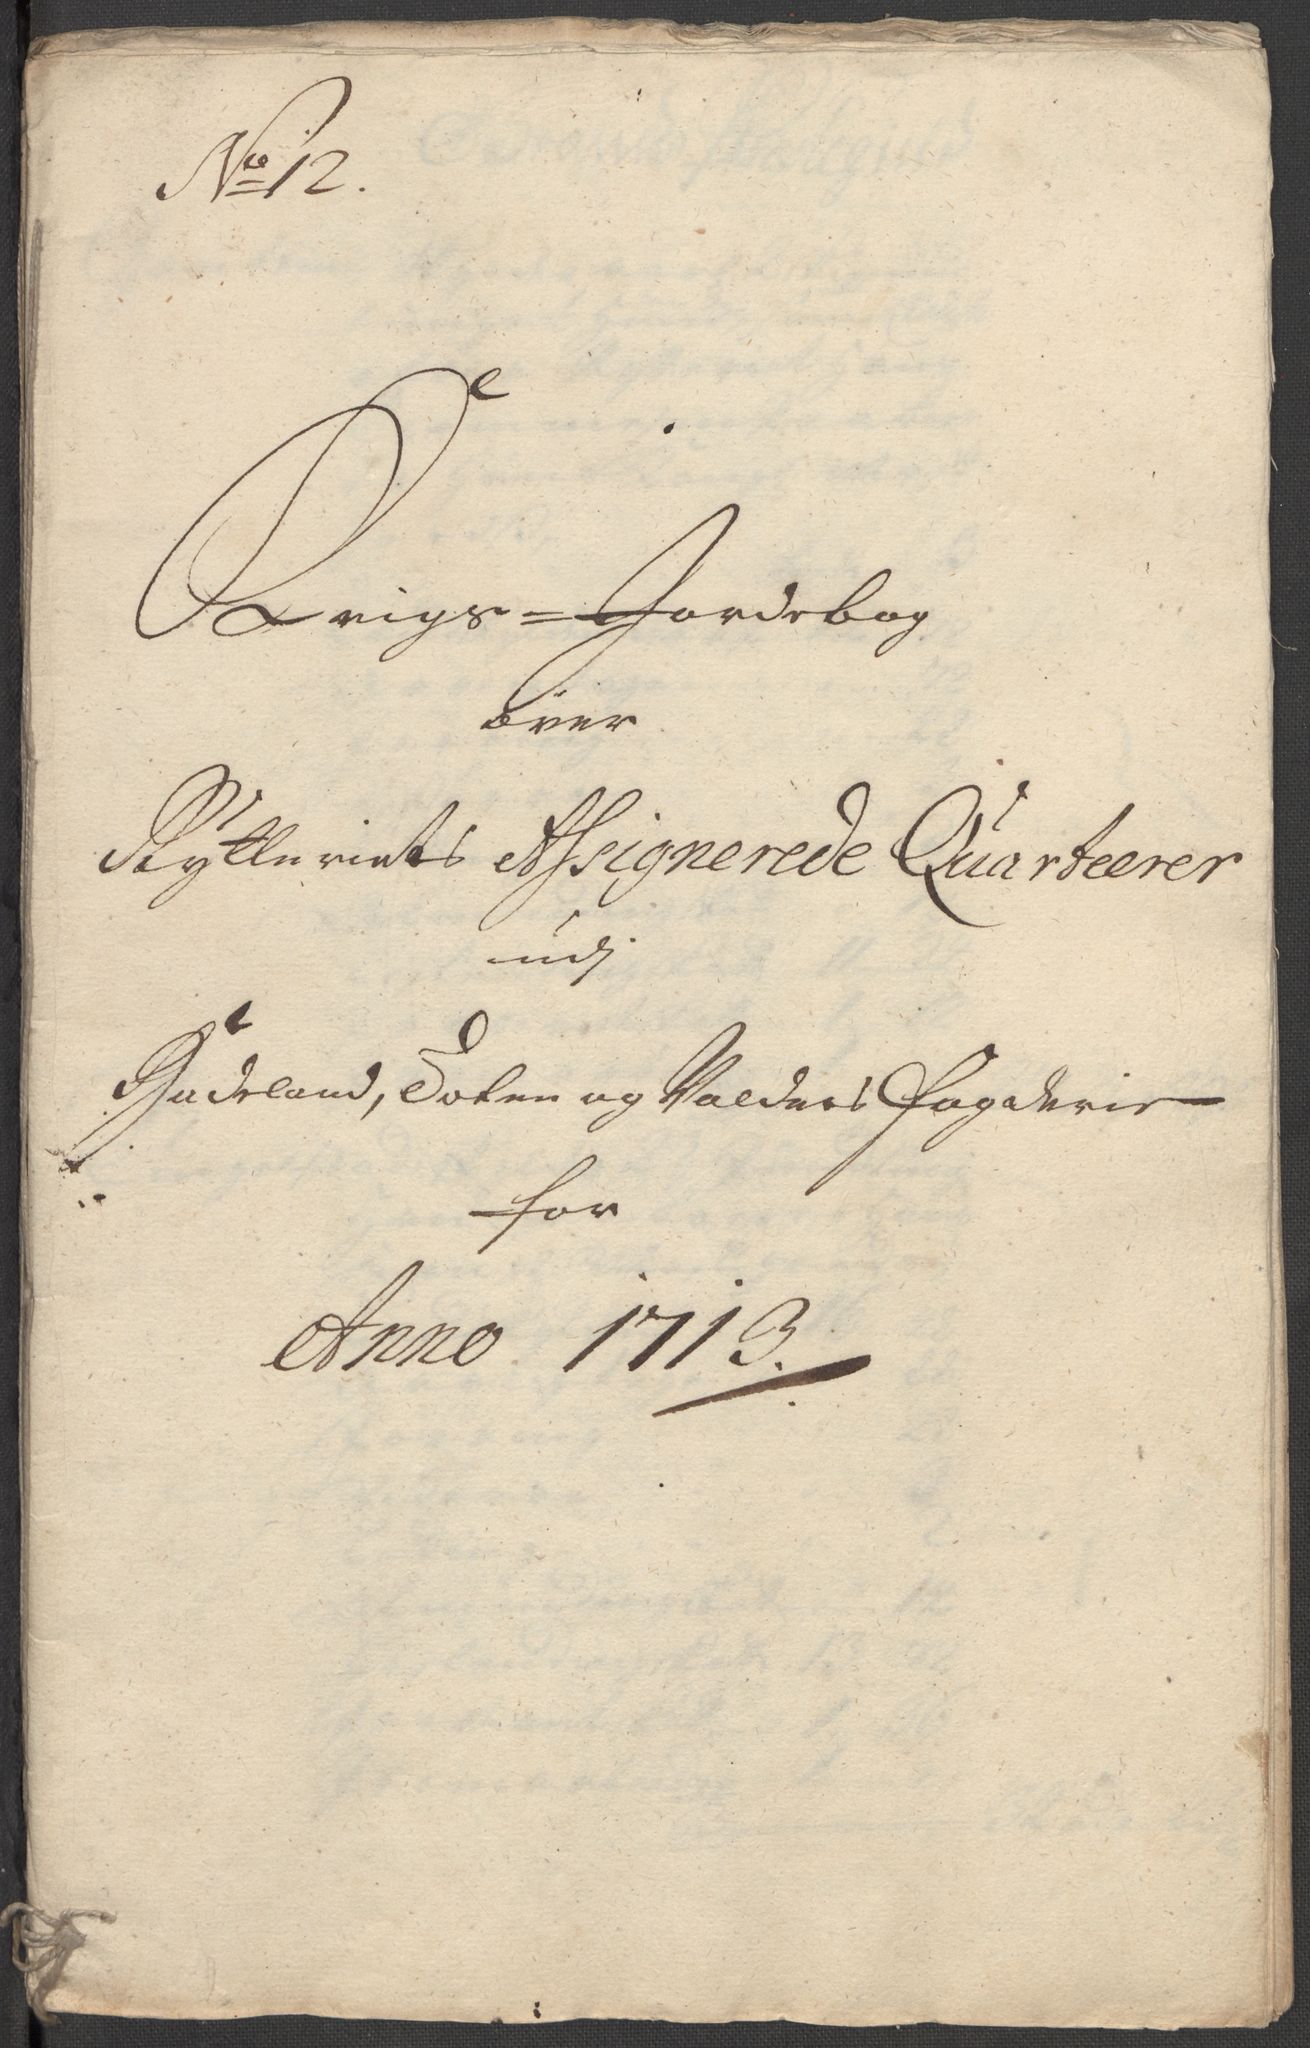 No 12.
Krigs=Jordebog
över
Rÿtteriets Assignerede Quarteerer
udj
Hadeland, Toten og Valders Fogderie
for
Anno 1713.